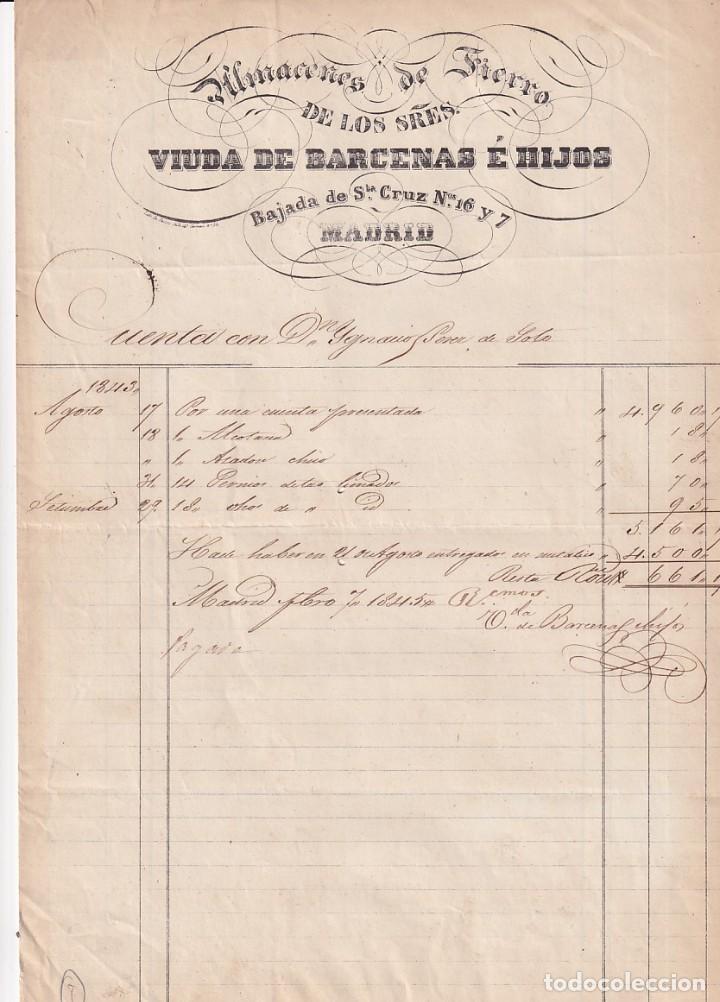 Almacenes de Fierro
DE LOS SRÑES.
VIUDA DE BARCENAS É HIJOS
Bajada de Sta. Cruz Nos. 16 y 7
MADRID
Cuenta con Dn. Ygnacio Perez de Soto
1843
Agosto 17 Por una cuenta presentada " 4.960
18 1 Alcotana " 18
" 1 Azadon " 18
31 14 Pernios de tas limados " 70
Setiembre 27 18 chos de " id " 95
5.161
Hade haber en 21 de Agosto entregados en metalico " 4.500
Resta Rvon 661
Madrid 1845 Remos.
Vda. de Barcenas é hijos
Pagara
todocoleccion